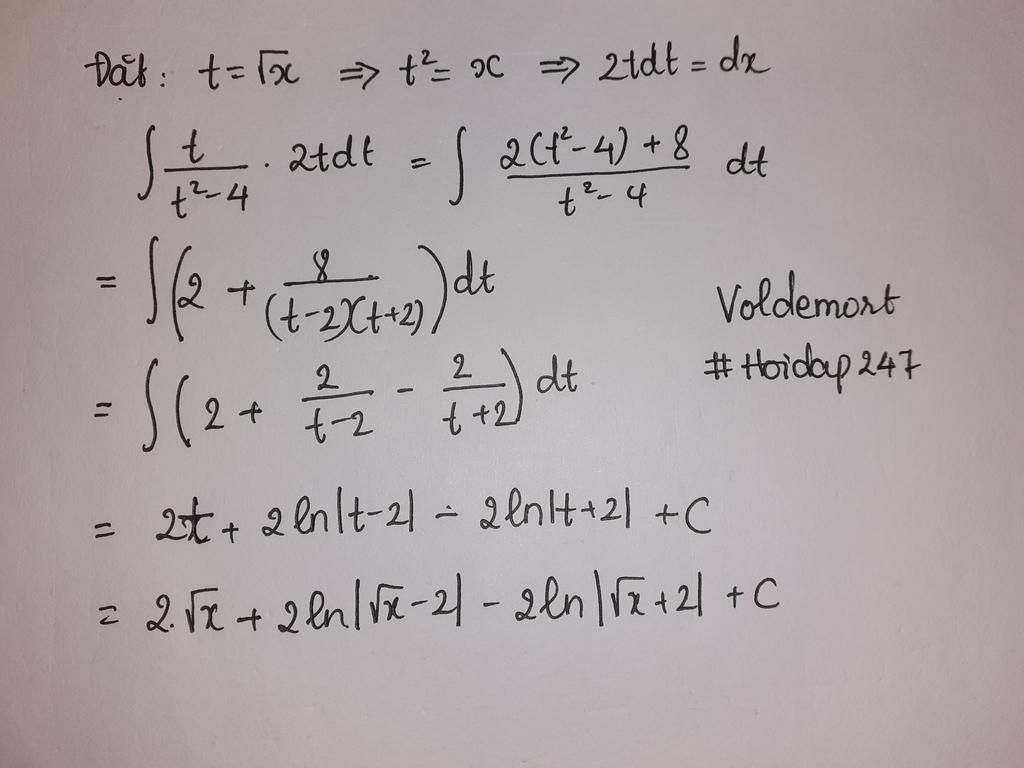 Đặt: t = √x ⇒ t² = x ⇒ 2tdt = dx
∫ t/(t²-4) . 2tdt = ∫ (2(t²-4)+8)/(t²-4) dt
= ∫(2 + 8/((t-2)(t+2)))dt
Voldemort
= ∫(2 + 2/(t-2) - 2/(t+2))dt
#Hoidap247
= 2t + 2ln|t-2| - 2ln|t+2| + C
= 2.√x + 2ln|√x-2| - 2ln|√x+2| + C